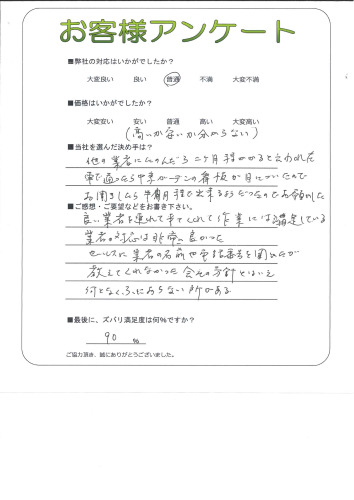 お客様アンケート
■弊社の対応はいかがでしたか?
大変良い 良い 普通 不満 大変不満
■価格はいかがでしたか?
大変安い 安い 普通 高い 大変高い
(高いか安いか分からない)
■当社を選んだ決め手は?
他の業者にたのんだら二ヶ月程かかると言われた
車で通ったら中京ガーデンの看板が目についたので
お聞きしたら半月程で出来るようだったのでお願いした
■ご感想・ご要望などをお書き下さい。
良い業者を連れて来てくれて作業には満足している
業者の対応は非常に良かった
セールスに業者の名前や電話番号を聞いたが
教えてくれなかった 会社の方針とはいえ
何となくふにおちない所がある
■最後に、ズバリ満足度は何%ですか?
90 %
ご協力頂き、誠にありがとうございました。